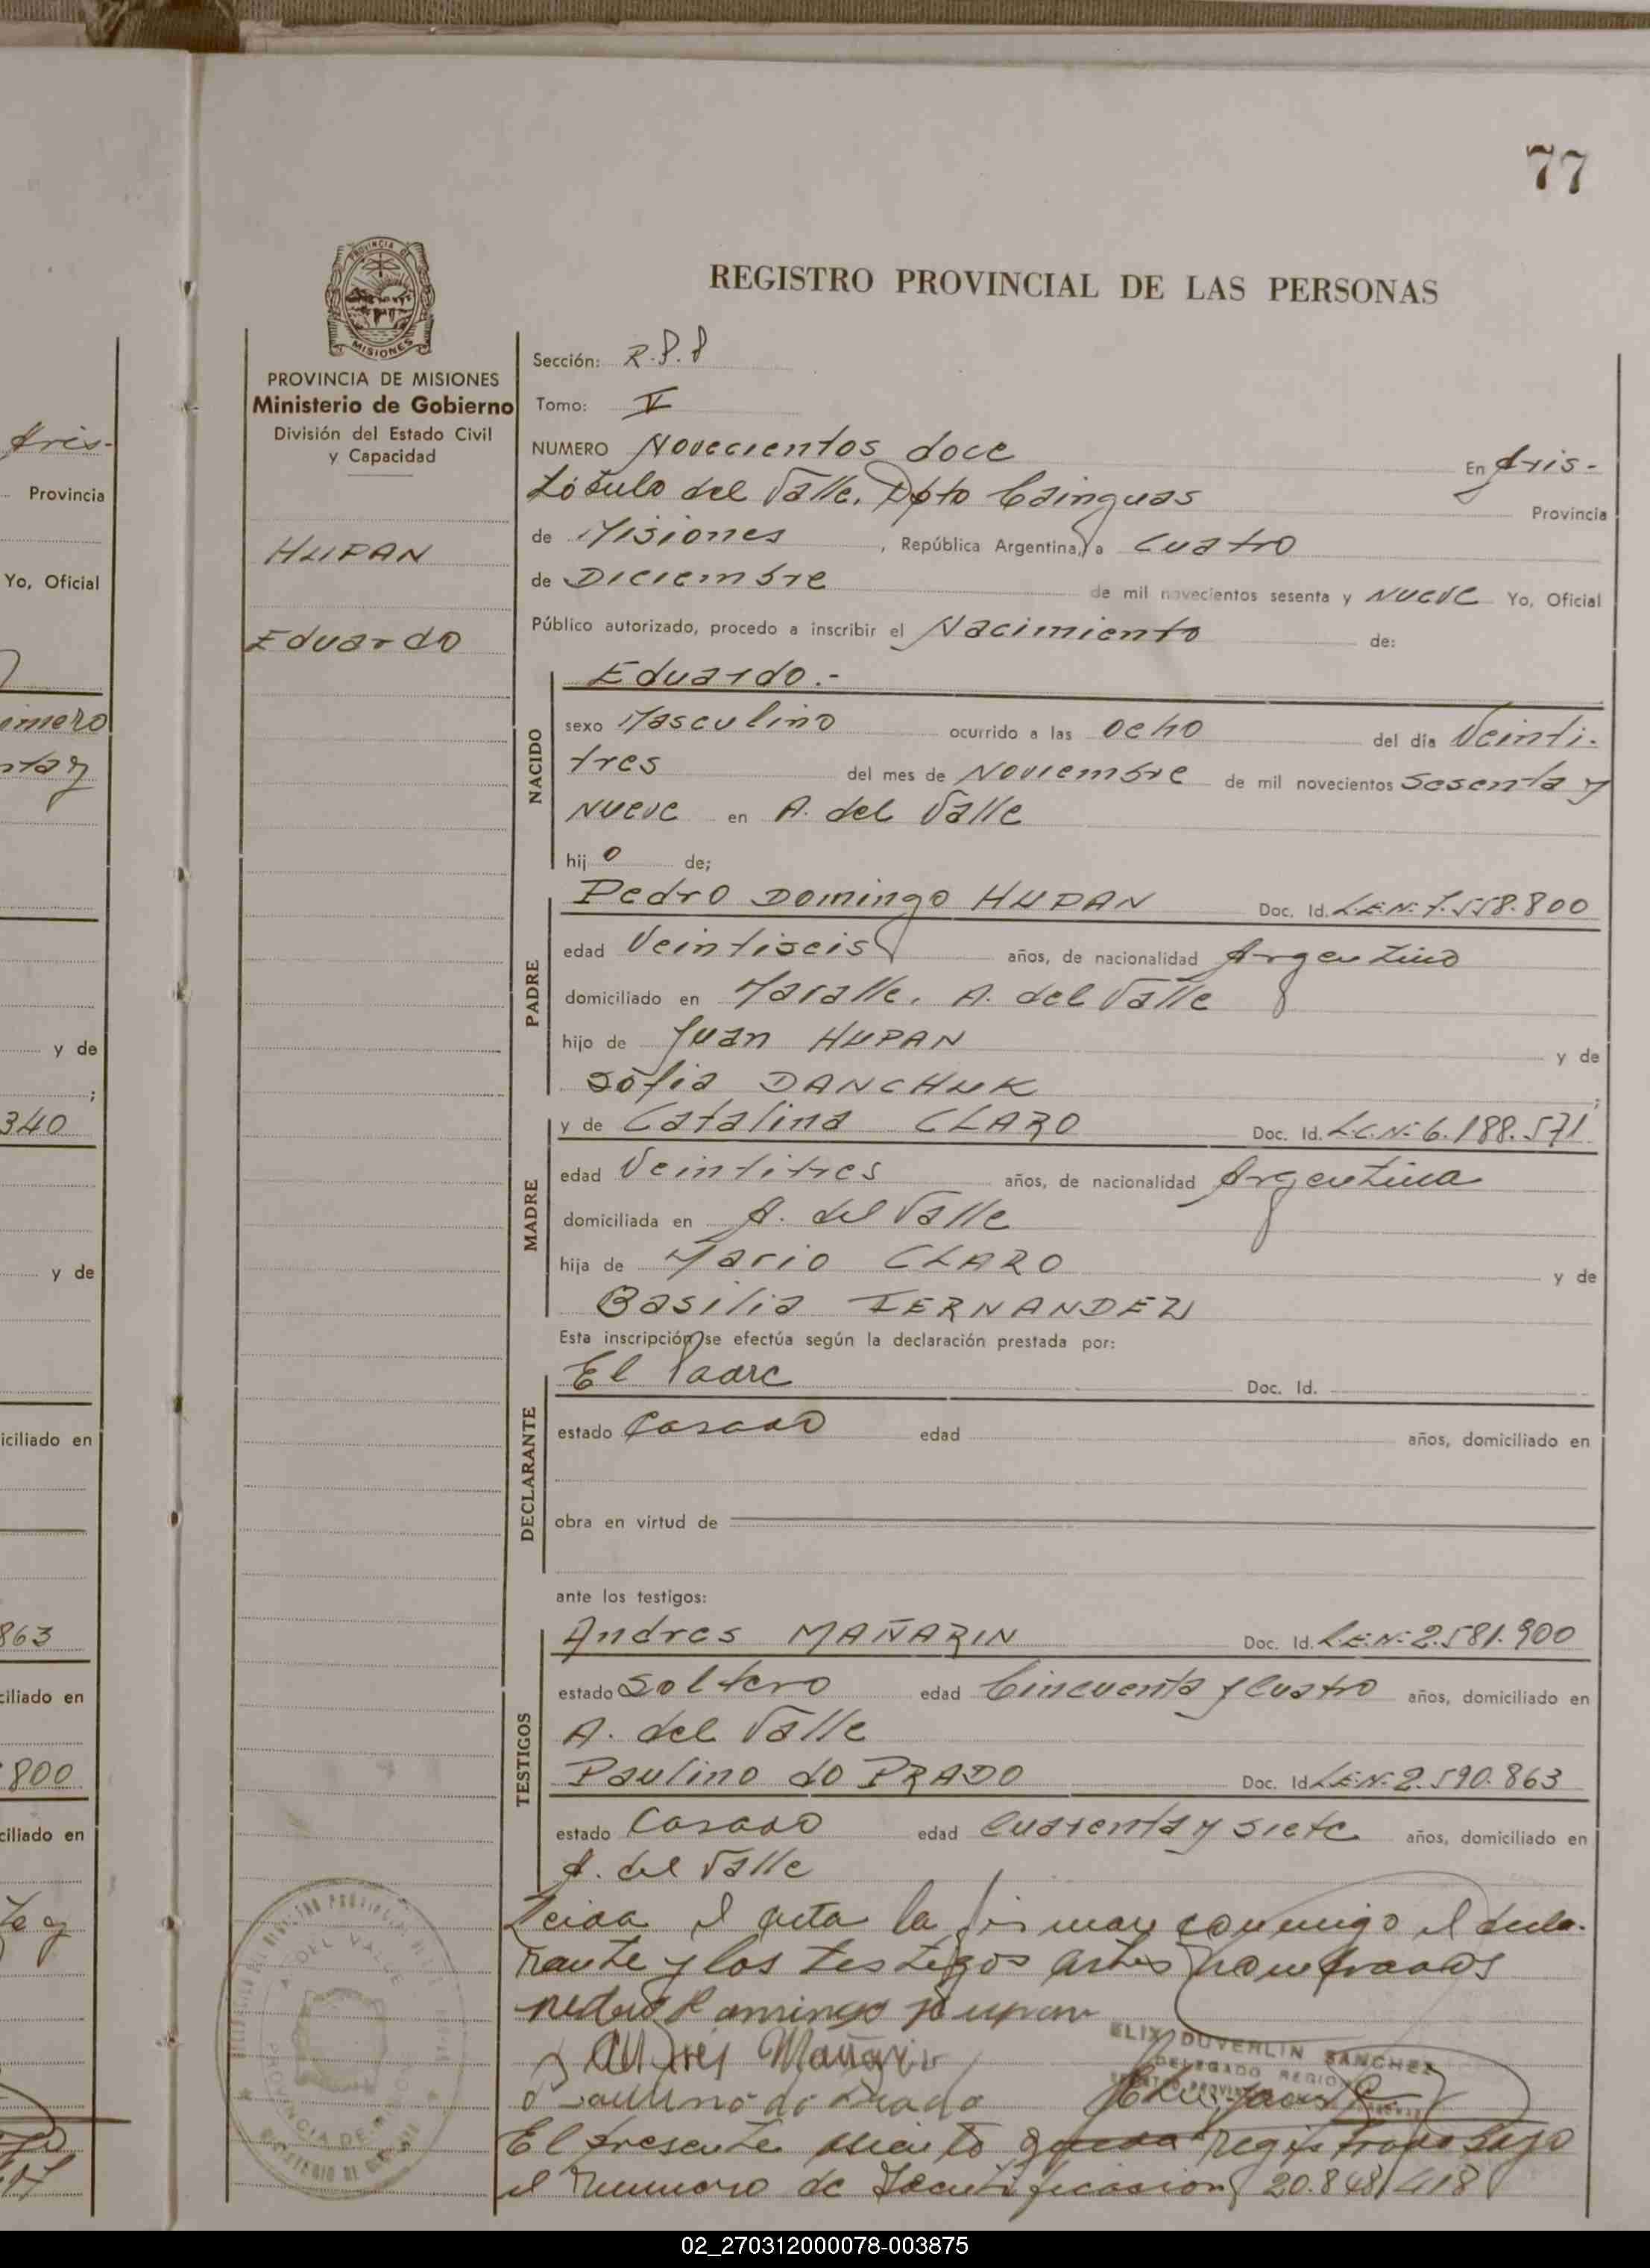 77
PROVINCIA DE
MISIONES
REGISTRO PROVINCIAL DE LAS PERSONAS
PROVINCIA DE MISIONES
Ministerio de Gobierno
División del Estado Civil
y Capacidad
HUPAN
Eduardo
Sección: R.P.P
Tomo: V
NUMERO Novecientos doce En Aris-
tóbulo del Valle, Dpto Cainguas Provincia
de Misiones , República Argentina, a Cuatro
de Diciembre de mil novecientos sesenta y Nueve Yo, Oficial
Público autorizado, procedo a inscribir el Nacimiento de:
NACIDO
Eduardo.-
sexo Masculino ocurrido a las ocho del día Veinti-
tres del mes de Noviembre de mil novecientos Sesenta y
Nueve en A. del Valle
hij o de;
PADRE
Pedro Domingo HUPAN Doc. Id. L.E.N: 7.558.800
edad Veintiseis años, de nacionalidad Argentino
domiciliado en A. del Valle
hijo de Juan HUPAN y de
Sofia DANCHUK ;
MADRE
y de Catalina CLARO Doc. Id. L.C.N: 6.188.571
edad Veintitres años, de nacionalidad Argentina
domiciliada en A. del Valle
hija de Mario CLARO y de
Basilia FERNANDEZ
Esta inscripción se efectúa según la declaración prestada por:
DECLARANTE
El Padre Doc. Id.
estado Casado edad años, domiciliado en
obra en virtud de
ante los testigos:
TESTIGOS
Andres MAÑARIN Doc. Id. L.E.N: 2.581.900
estado Soltero edad Cincuenta y Cuatro años, domiciliado en
A. del Valle
Paulino do PRADO Doc. Id L.E.N: 2.590.863
estado Casado edad Cuarenta y Siete años, domiciliado en
A. del Valle
Leida el acta la firman conmigo el decla-
rante y los testigos antes nombrados
Pedro Domingo Hupan
Andrés Mañarin
Paulino do Prado
ELIX DUVERLIN SANCHEZ
DELEGADO REGIONAL
El presente asiento queda registrado bajo
el numero de Identificacion 20.848.418
A. DEL VALLE
PROVINCIA DE MISIONES
MINISTERIO DE GOBIERNO
Aris-
Provincia
Yo, Oficial
y de
;
340
y de
iciliado en
863
ciliado en
800
ciliado en
02_270312000078-003875